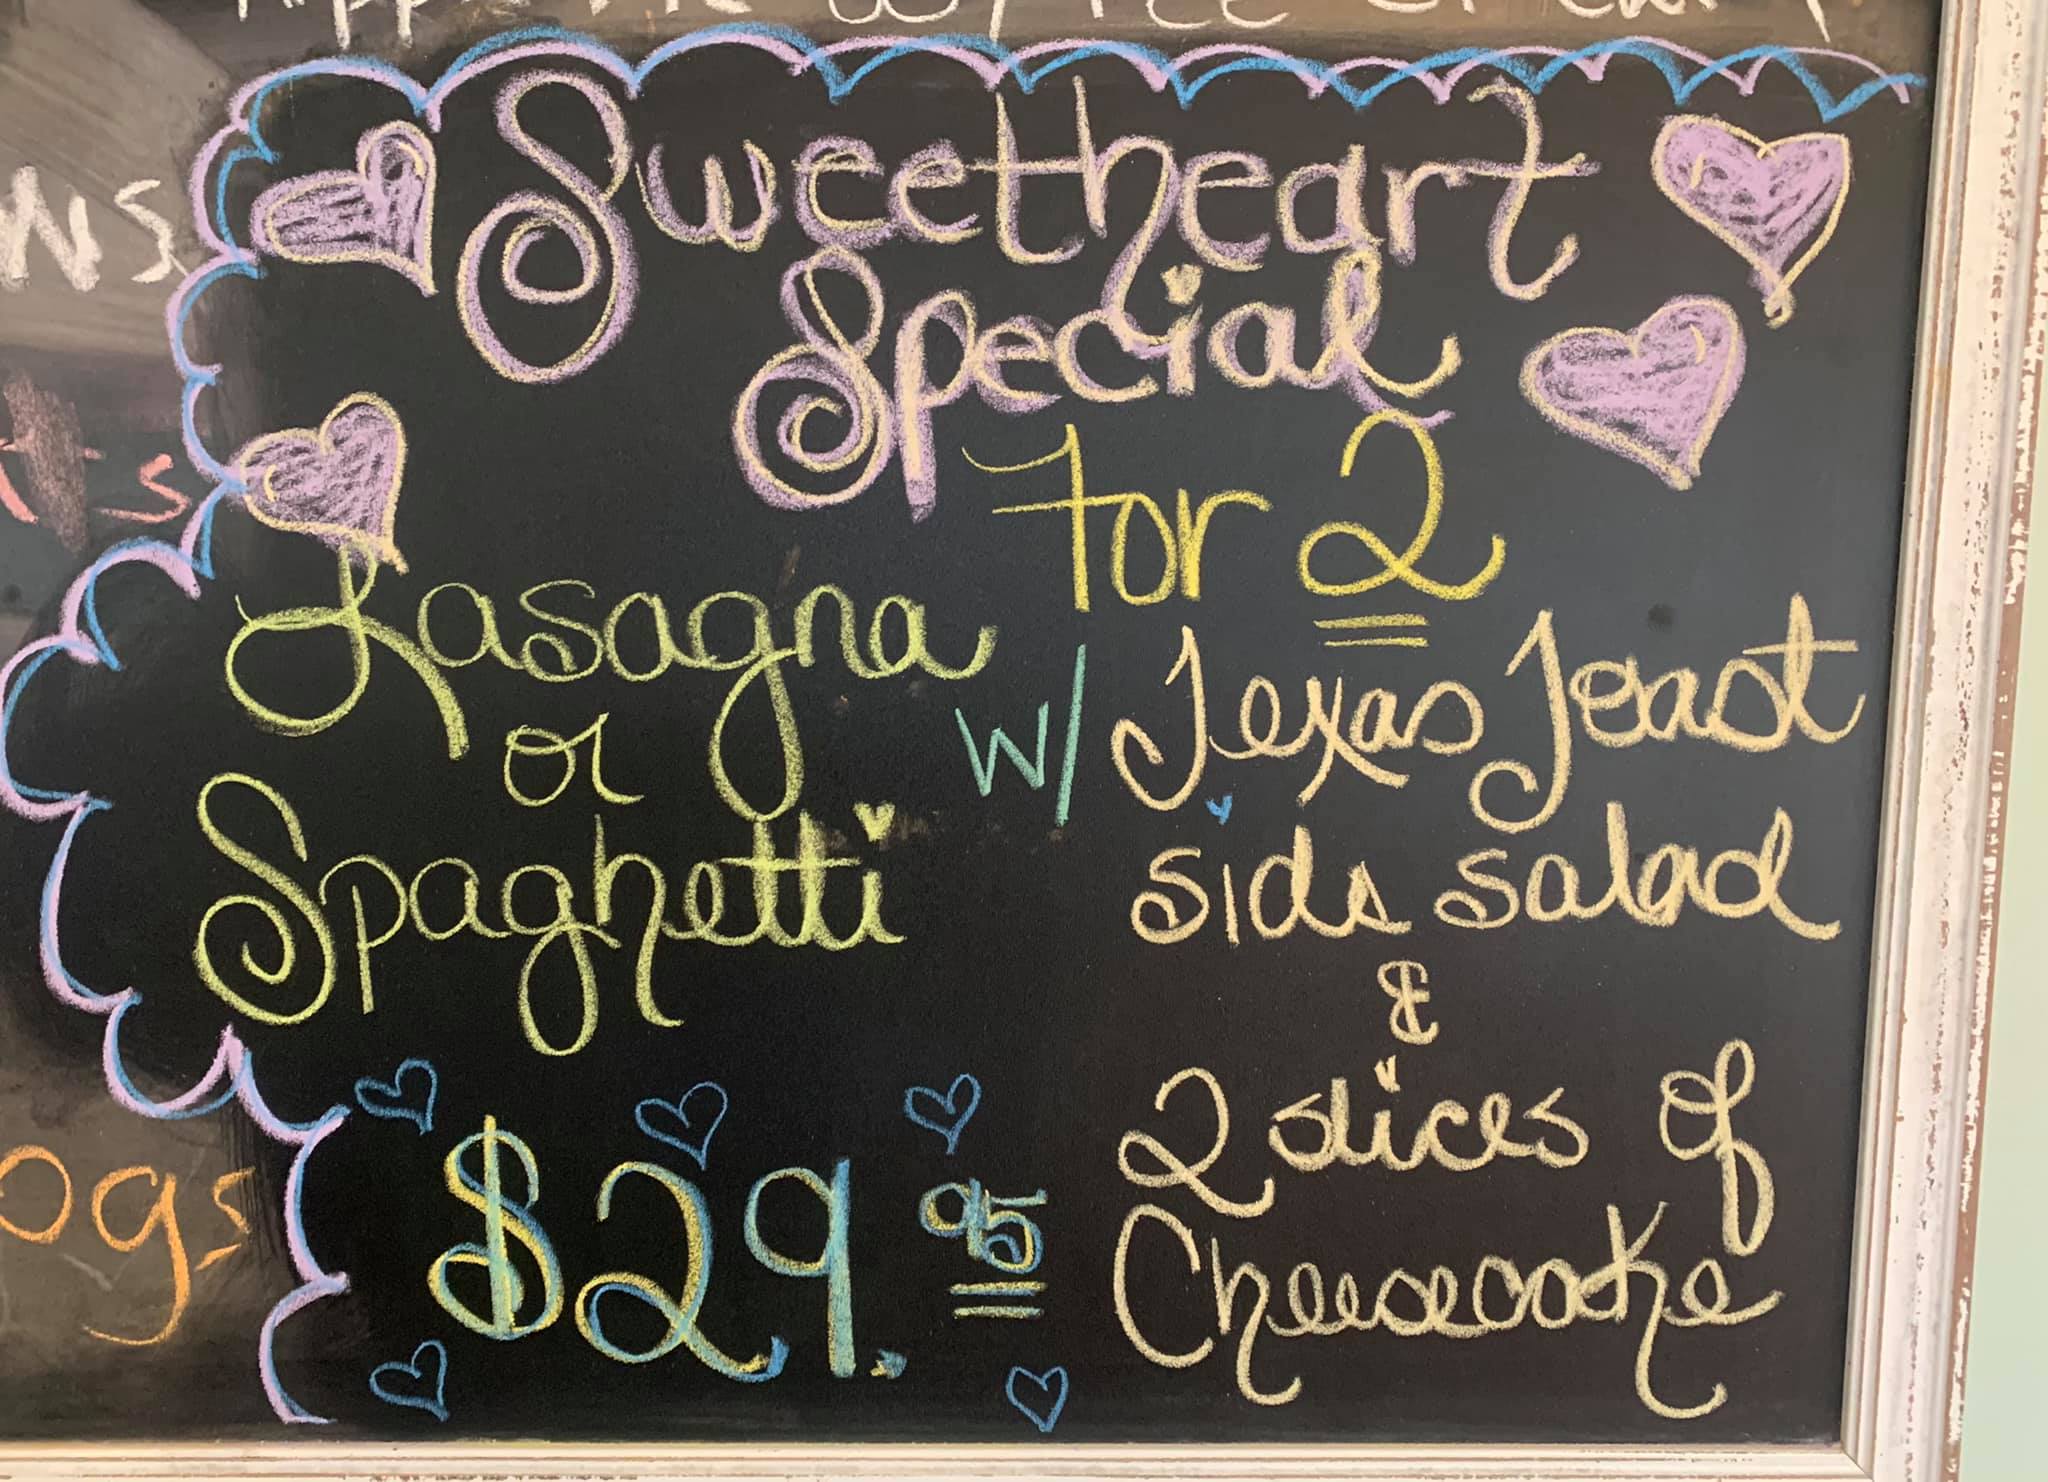 Sweetheart
Special
For 2
Lasagna
or
Spaghetti
w/
Texas Toast
side salad
&
2 slices of
Cheesecake
$29.95